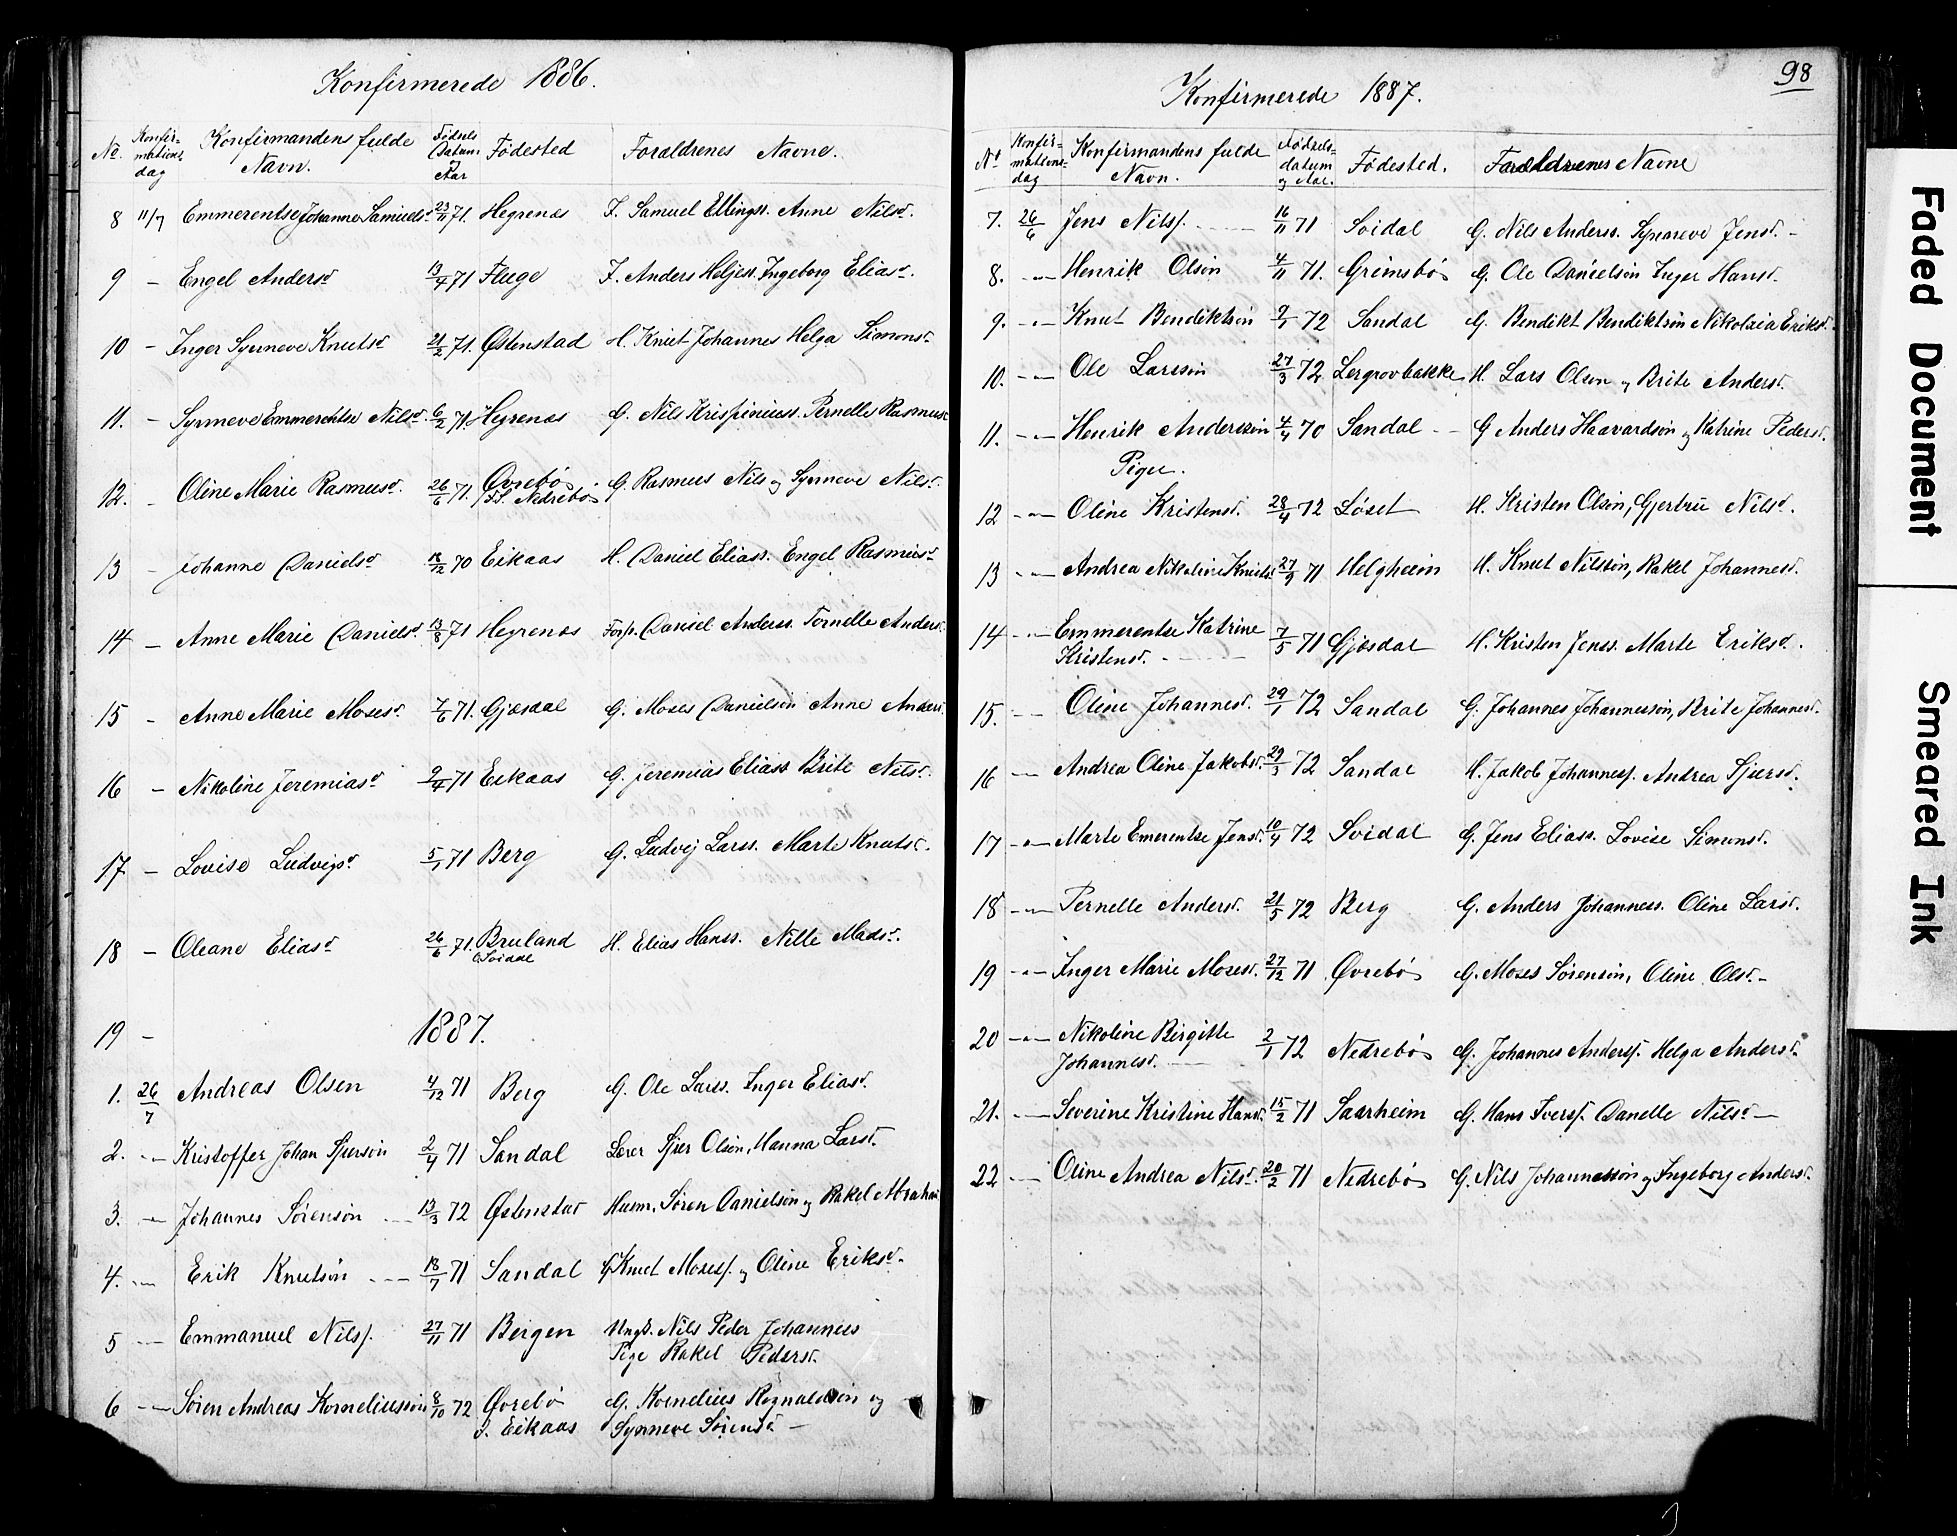 Konfirmerede 1886.
No. Konfir-mations dag Konfirmandens fulde Navn. Fødsels Datum og Aar Fødested Forældrenes Navne.
8 11/7 Emmerentse Johanne Samuelsd. 23/11 71. Hegrenæs F. Samuel Ellingss. Anne Nilsd.
9 — Engel Andersd 13/4 71 Fluge F. Anders Heljess. Ingeborg Eliasd.
10 — Inger Synneve Knutsd 21/2 71. Østenstad H. Knut Johannes Helga Simonsd.
11. — Synneve Emmerentse Nilsd. 6/2 71. Hegrenæs G. Nils Krispiniuss. Pernelle Rasmusd
12. — Oline Marie Rasmusd. 26/6 71. Øvrebø G. Rasmus Nils og Synneve Nilsd.
f. Nedrebø
13 — Johanne Danielsd 18/12 70 Eikaas H. Daniel Eliass. Engel Rasmusd
14 — Anne Marie Danielsd. 13/8 71 Hegrenæs Forp. Daniel Anderss. Tornelle Andersd.
15 — Anne Marie Mosesd. 7/6 71. Gjæsdal G. Moses Danielson Anne Andersd.
16 — Nikoline Jeremiasd 9/4 71 Eikaas G. Jeremias Eliass Brite Nilsd.
17 — Lovise Ludvigsd 5/1 71 Berg G. Ludvig Larss. Marte Knutsd.
18 — Oleane Eliasd 26/6 71. Bruland H. Elias Hanss. Nille Madsd.
Søidal
19 — 1887.
1. 26/7 Andreas Olsen 4/12 71 Berg G. Ole Larss. Inger Eliasd.
2. -"- Kristoffer Johan Sjurson 2/4 71 Sandal Lærer Sjur Olson, Hanna Larsd.
3. -"- Johannes Sørensøn 13/3 72 Østenstad Husm. Søren Danielson og Rakel Abraham
4. -"- Erik Knutsøn 18/1 71 Sandal G Knut Mosess. og Oline Eriksd.
5 -"- Emmanuel Nilss. 27/11 71 Bergen Ungk. Nils Peder Johannes
Pige Rakel Pedersd.
6 -"- Søren Andreas Korneliussøn 8/10 72 Øvrebø G. Kornelius Rognaldsøn og
f. Eikaas Synneve Sørensd. —
98
Konfirmerede 1887.
No Konfir-mations-dag Konfirmandens fulde Navn. Fødsels-datum og Aar. Fødested. Forældrenes Navne
7. 26/6 Jens Nilss. 16/11 71 Søidal G. Nils Anderss. Synneve Jensd. —
8. -"- Henrik Olsøn 4/11 71. Grimsbø G. Ole Danielsøn Inger Hansd.
9. -"- Knut Bendiktsøn 9/1 72 Sandal G. Bendikt Bendiktsøn Nikolsia Eriksd.
10. -"- Ole Larssøn 27/3 72 Lergrovbakke H. Lars Olson og Brite Andersd.
11. -"- Henrik Anderssøn 4/4 70 Sandal G Anders Haavardsøn og Katrine Pedersd.
Piger.
12 -"- Oline Kristensd. 28/4 72 Løset H. Kristen Olsøn, Gjertrü Nilsd.
13 -"- Andrea Nikoline Knutsd. 27/9 71 Helgheim H. Knut Nilssøn, Rakel Johannesd.
14 -"- Emmerentse Katrine 7/5 71 Gjæsdal H. Kristen Jenss. Marte Eriksd.
Kristensd.
15. -"- Oline Johannesd. 29/1 72 Sandal G. Johannes Johannessøn, Brite Johannesd.
16 -"- Andrea Oline Jakobsd. 29/3 72 Sandal H. Jakob Johanness. Andrea Sjursd.
17 -"- Marte Emerentse Jensd. 10/4 72 Søidal G. Jens Eliass. Lovise Simonsd.
18 -"- Pernelle Andersd. 21/5 72 Berg G. Anders Johanness. Oline Larsd.
19 -"- Inger Marie Mosesd. 27/12 71 Øvrebø G. Moses Sørensøn, Oline Olsd. —
20 -"- Nikoline Birgitte 2/1 72 Nedrebø G. Johannes Anderss. Helga Andersd.
Johannesd.
21. -"- Severine Kristine Hansd. 15/2 71 Saarheim G. Hans Iverss. Danelle Nilsd —
22 -"- Oline Andrea Nilsd. 20/2 71 Nedrebø G. Nils Johannessøn og Ingeborg Andersd.
Faded Document
Smeared Ink